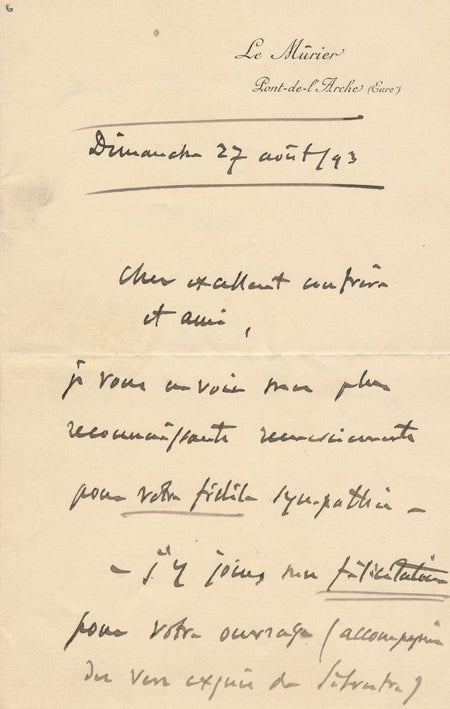 6
Le Mûrier
Pont-de-l'Arche (Eure)
Dimanche 27 août/93
Cher excellent confrère
et ami,
je vous envoie mes plus
reconnaissants remerciements
pour votre fidèle sympathie —
— j'y joins mes félicitations
pour votre ouvrage (accompagné
du vers exquis de Silvestre)